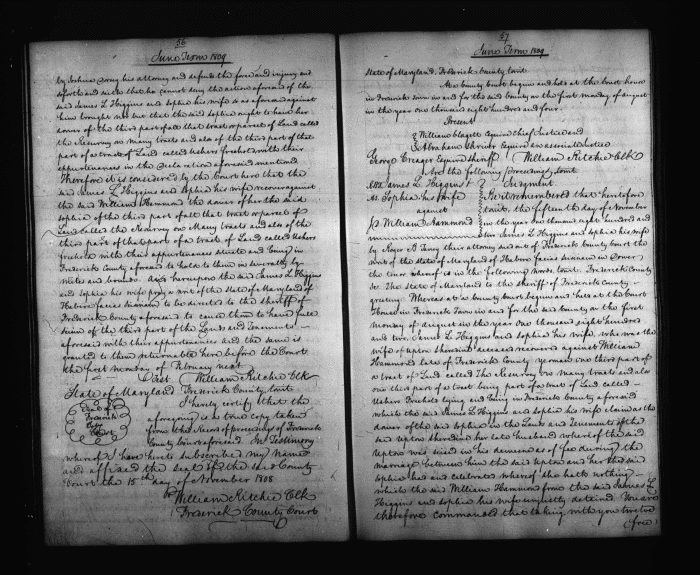 56
June Term 1809
by Joshua Dorsey his attorney and defends the force and injury and
so forth and saith that he cannot deny the action aforesaid of the
said James L Higgins and Sophia his wife so as aforesaid against
him brought nor but that the said Sophia ought to have her
dower of the third part of all that tract or parcel of Land called
the Resurvey on Many tracts and also of the third part of that
part of a tract of Land called Ushers freehold with their
appurtenances in the Declaration aforesaid mentioned
Therefore it is considered by the Court here that the
said James L Higgins and Sophia his wife recover against
the said William Hammond the dower of her the said
Sophia of the third part of all that tract or parcel of
Land called the Resurvey on Many tracts and also of the
third part of that part of a tract of Land called Ushers
freehold with their appurtenances situate and lying in
Frederick County aforesaid to hold to them in severalty by
Metes and bounds. And hereupon the said James L Higgins
and Sophia his wife pray a writ of the State of Maryland of
Habere facias Seisinam to be directed to the Sheriff of
Frederick County aforesaid to cause them to have full
seisin of the third part of the Lands and Tenements
aforesaid with their appurtenances and the same is
granted to them returnable here before the Court
the first monday of February next
Test William Ritchie Clk
State of Maryland Frederick County to wit
Seal of
Frederick
Coty
Court
I hereby certify that the
aforegoing is a true copy taken
from the Record of proceedings of Frederick
County Court aforesaid In Testimony
whereof I have hereto subscribe my name
and affixed the seal of the said County
Court the 15th day of November 1808
William Ritchie Clk
Frederick County Court
57
June Term 1809
State of Maryland, Frederick County to wit
At a County Court begun and held at the Court house
in Frederick Town in and for the said County on the first monday of august
in the year one thousand eight hundred and four.
Present
William Claggett Esquire Chief Justice and
Abraham Shriver Esquire associate Justice
George Creager Esquire Sheriff William Ritchie Clk
Are the following proceedings, to wit
James L. Higgins &
Sophia his Wife
against
William Hammond
Judgment
Be it remembered that heretofore
to wit, the fifteenth day of November
in the year one thousand eight hundred and
James L Higgins and Sophia his wife
by Roger B Taney their attorney sued out of Frederick County Court the
writ of the State of Maryland of Habere facias seisinam in Dower
the tenor whereof is in the following words to wit. Frederick County
Sc. The State of Maryland to the Sheriff of Frederick County
greeting Whereas at a County Court begun and held at the Court
House in Frederick Town in and for the said County on the first
monday of august in the year one thousand eight hundred
and two, James L Higgins and Sophia his wife, who was the
wife of Upton Sheredine deceased recovered against William
Hammond late of Frederick County yeoman one third part of
a tract of Land called The Resurvey on Many tracts and also
one third part of a tract being part of a tract of Land called
Ushers Freehold lying and being in Frederick County aforesaid
which the said James L Higgins and Sophia his wife claim as the
dower of the said Sophia in the Lands and Tenements of the
said Upton Sheredine her late husband whereof the said
Upton was seized in his demesne as of fee during the
marriage between him the said Upton and her the said
Sophia had and celebrated whereof she hath nothing
which the said William Hammond from the said James L
Higgins and Sophia his wife unjustly detains You are
therefore commanded that taking with you twelve
(free)